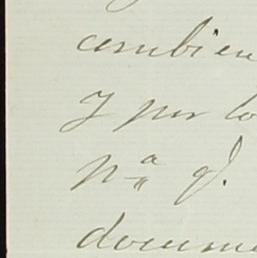 cambien
y por lo
pª q.
docume